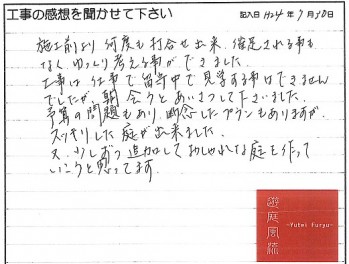 工事の感想を聞かせて下さい
記入日 H24年7月30日
施工前より何度も打合せ出来、催促される事も
なく、ゆっくり考える事ができました。
工事は仕事で留守中で見学する事はできません
でしたが、朝会うとあいさつして下さいました。
予算の問題もあり、断念したプランもありますが、
スッキリした庭が出来ました。
又、少しずつ追加しておしゃれな庭を作って
いこうと思ってます。
遊庭風流
-Yutei Furyu-